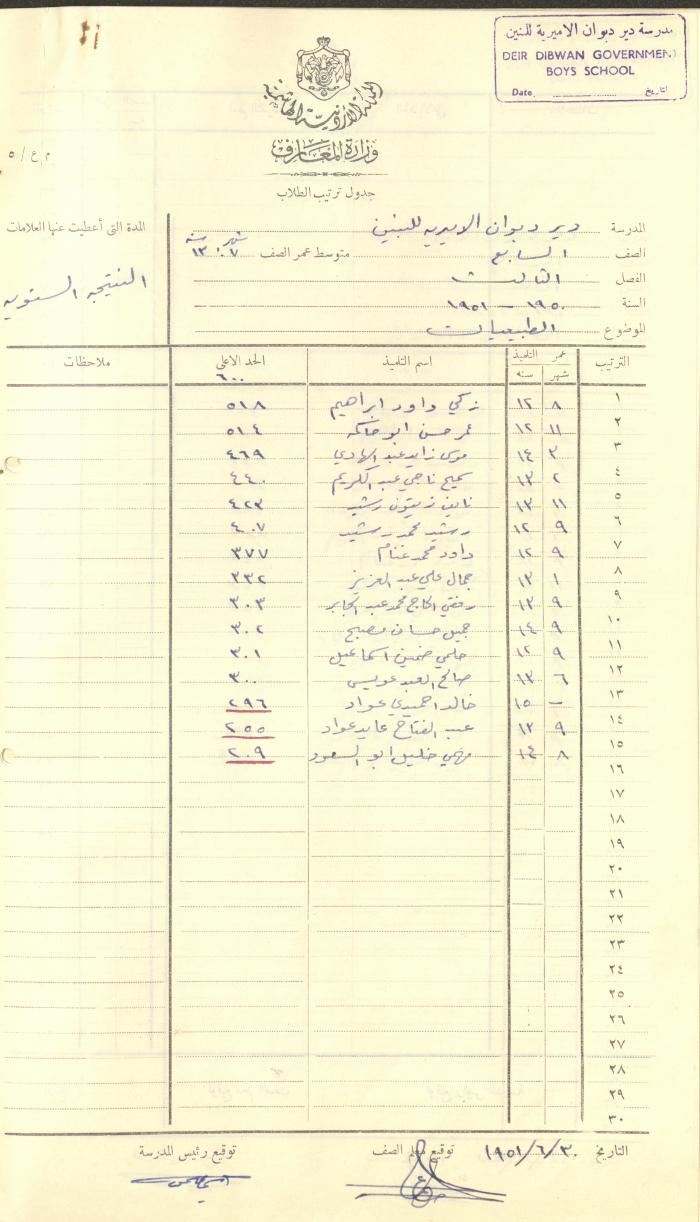 مدرسة دير دبوان الاميرية للبنين
DEIR DIBWAN GOVERNMENT
BOYS SCHOOL
Date. التاريخ
المملكة الأردنية الهاشمية
وزارة المعارف
م ع / ٥
جدول ترتيب الطلاب
المدرسة دير دبوان الاميريه للبنين
المدة التى أعطيت عنها العلامات
الصف السابع متوسط عمر الصف شهر ٠٧ سنه ١٣
النتيجه السنويه
الفصل الثالث
السنة ١٩٥٠ – ١٩٥١
الموضوع الطبيعيات
الترتيب عمر التلميذ اسم التلميذ الحد الاعلى ملاحظات
شهر سنه ٦٠٠
١ ٨ ١٢ زكي داود ابراهيم ٥١٨
٢ ١١ ١٢ عمر حسن ابو حاكمه ٥١٤
٣ ٣ ١٤ موسى زايد عبد الهادي ٤٦٩
٤ ٢ ١٣ سميح ناجي عبد الكريم ٤٤٠
٥ ١١ ١٣ نايف زيتون رشيد ٤٢٣
٦ ٩ ١٢ رشيد محمد رشيد ٤٠٧
٧ ٩ ١٢ داود محمد غنام ٣٧٧
٨ ١ ١٣ جمال علي عبد العزيز ٣٣٢
٩ ٩ ١٣ رفقي الحاج محمد عبد الجابر ٣٠٣
١٠ ٩ ١٤ جميل حسان مصبح ٣٠٢
١١ ٩ ١٢ حلمي اسماعيل ٣٠١
١٢ ٦ ١٣ صالح العبد عويس ٣٠٠
١٣ – ١٥ خالد احميدي عواد ٢٩٦
١٤ ٩ ١٢ عبد الفتاح عايد عواد ٢٥٥
١٥ ٨ ١٤ خليل ابو السعود ٢٠٩
١٦
١٧
١٨
١٩
٢٠
٢١
٢٢
٢٣
٢٤
٢٥
٢٦
٢٧
٢٨
٢٩
٣٠
التاريخ ١٩٥١/٦/٣٠ توقيع معلم الصف توقيع رئيس المدرسة